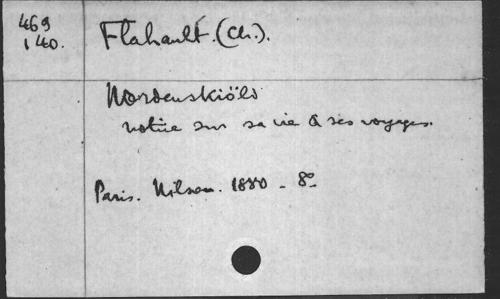 469
140.
Flahault. (Ch.).
Nordenskiöld
notice sur sa vie & ses voyages.
Paris. Nilson. 1880 - 8º